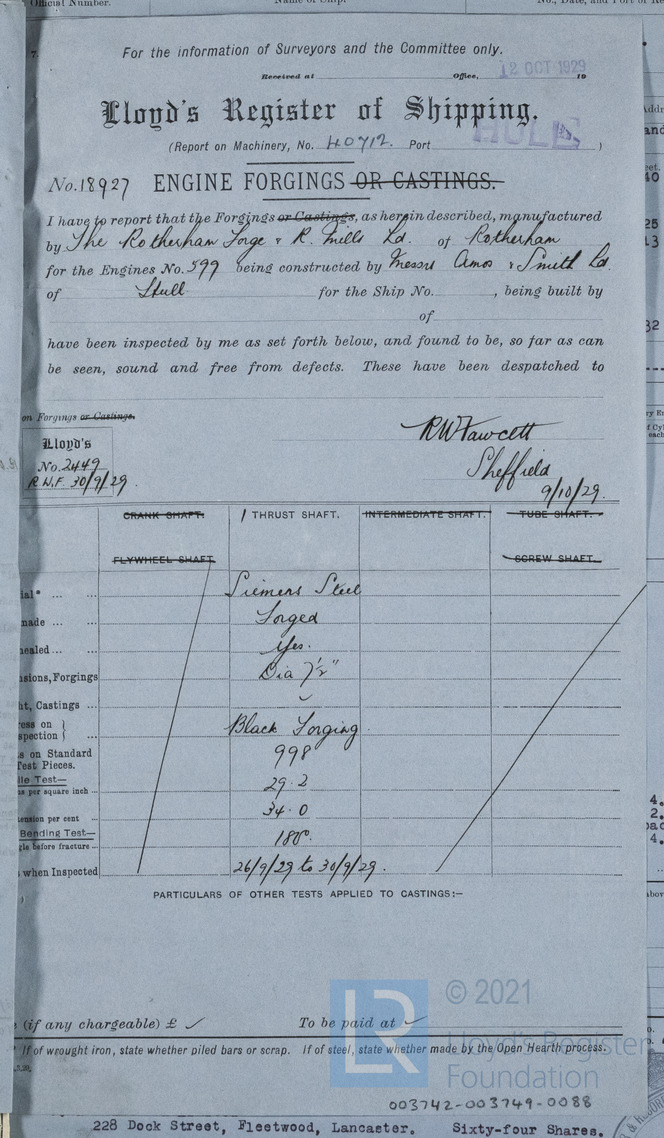 Official Number.
For the information of Surveyors and the Committee only.
Received at Office, 12 OCT 1929 19
Lloyd's Register of Shipping.
(Report on Machinery, No. 40712. Port HULL )
No. 18927 ENGINE FORGINGS OR CASTINGS.
I have to report that the Forgings or Castings, as herein described, manufactured
by The Rotherham Forge & R. Mills Ld. of Rotherham
for the Engines No. 599 being constructed by Messrs Amos & Smith Ld.
of Hull for the Ship No. , being built by
of
have been inspected by me as set forth below, and found to be, so far as can
be seen, sound and free from defects. These have been despatched to
on Forgings or Castings.
Lloyd's
No. 2449
R.W.F. 30/9/29.
RW Fawcett
Sheffield
9/10/29.
CRANK SHAFT. 1 THRUST SHAFT. INTERMEDIATE SHAFT. TUBE SHAFT.
FLYWHEEL SHAFT SCREW SHAFT.
ial* ... ... Siemens Steel
made ... ... Forged
ealed ... ... Yes.
sions, Forgings Dia 7½"
ht, Castings ...
ess on }
spection } Black Forging
s on Standard
Test Pieces. 998
le Test—
s per square inch ... 29.2
tension per cent ... 34.0
Bending Test—
gle before fracture ... 180°.
when Inspected 26/9/29 to 30/9/29.
PARTICULARS OF OTHER TESTS APPLIED TO CASTINGS:—
(if any chargeable) £ To be paid at
* If of wrought iron, state whether piled bars or scrap. If of steel, state whether made by the Open Hearth process.
LR © 2021
Lloyd's Register
Foundation
003742-003749-0088
228 Dock Street, Fleetwood, Lancaster. Sixty-four Shares.